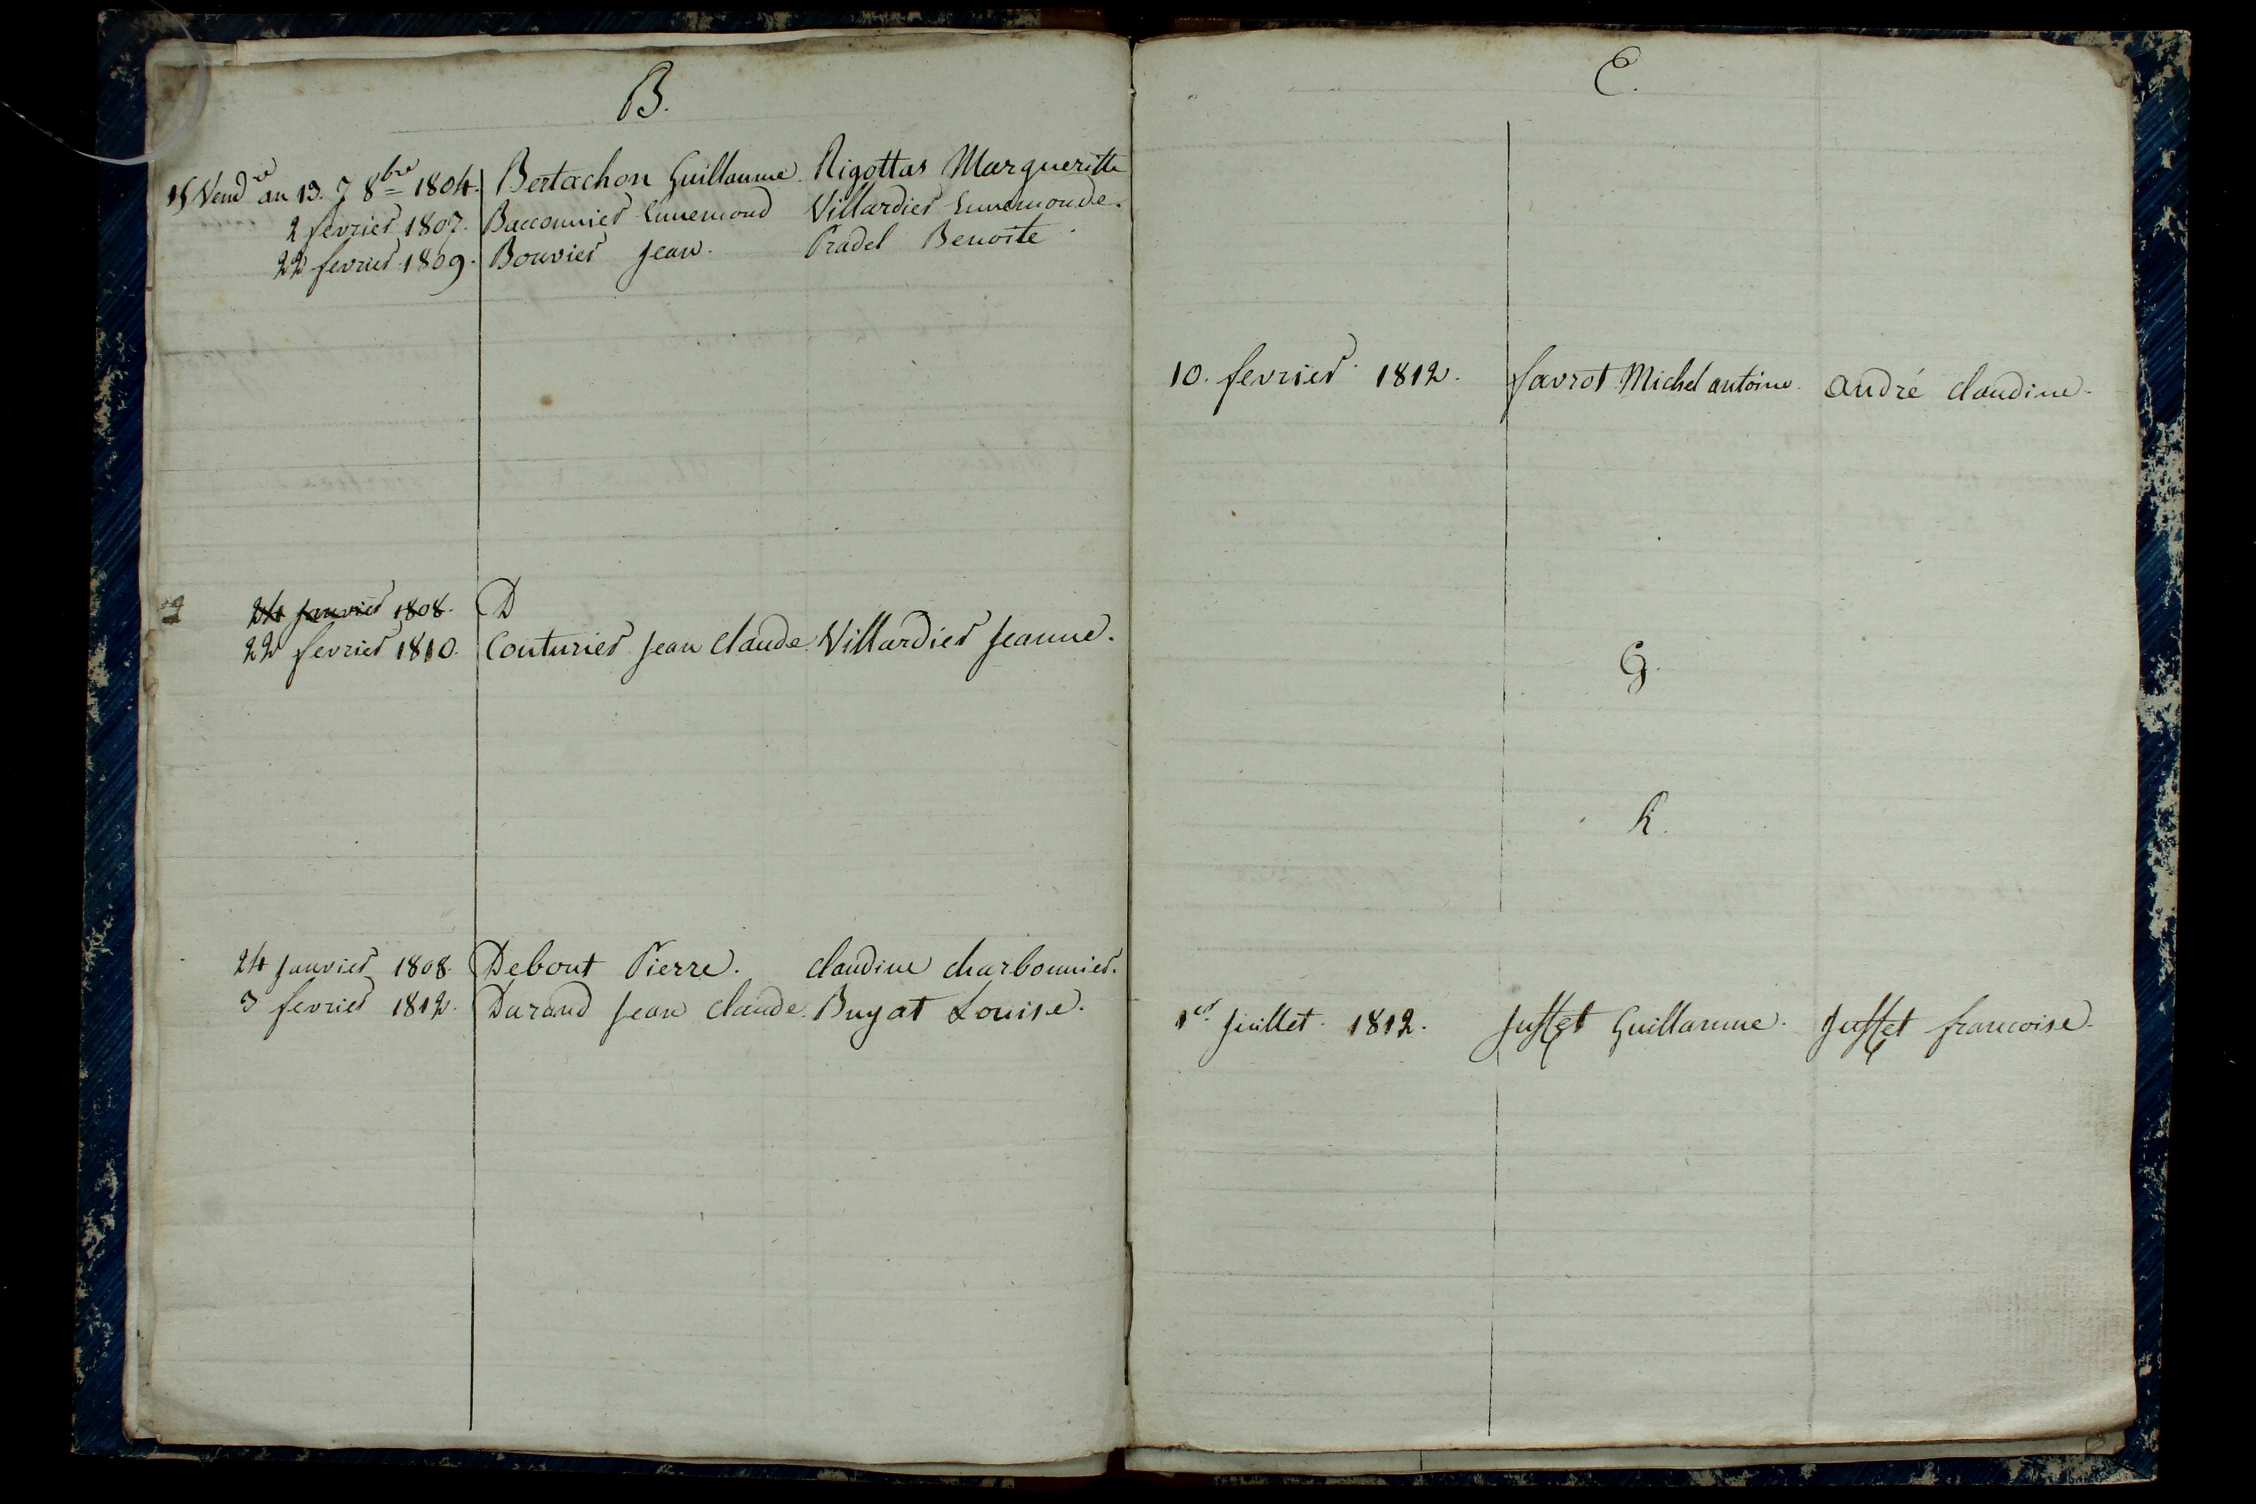 B.
15 Vend^re an 13. 7 8^bre 1804. Bertachon Guillaume. Rigottas Margueritte
2 fevrier 1807. Bacconnier Ennemond Villardier Ennemonde.
22 fevrier 1809. Bouvier Jean. Pradel Benoite.
24 Janvier 1808. D
22 fevrier 1810. Couturier Jean Claude. Villardier Jeanne.
24 Janvier 1808. Debout Pierre. Claudine Charbonnier.
3 fevrier 1812. Durand Jean Claude. Buyat Louise.
E.
10. fevrier 1812. favrot Michel antoine. André Claudine.
G.
h.
1er Juillet 1812. Juffet Guillaume. Juffet francoise.